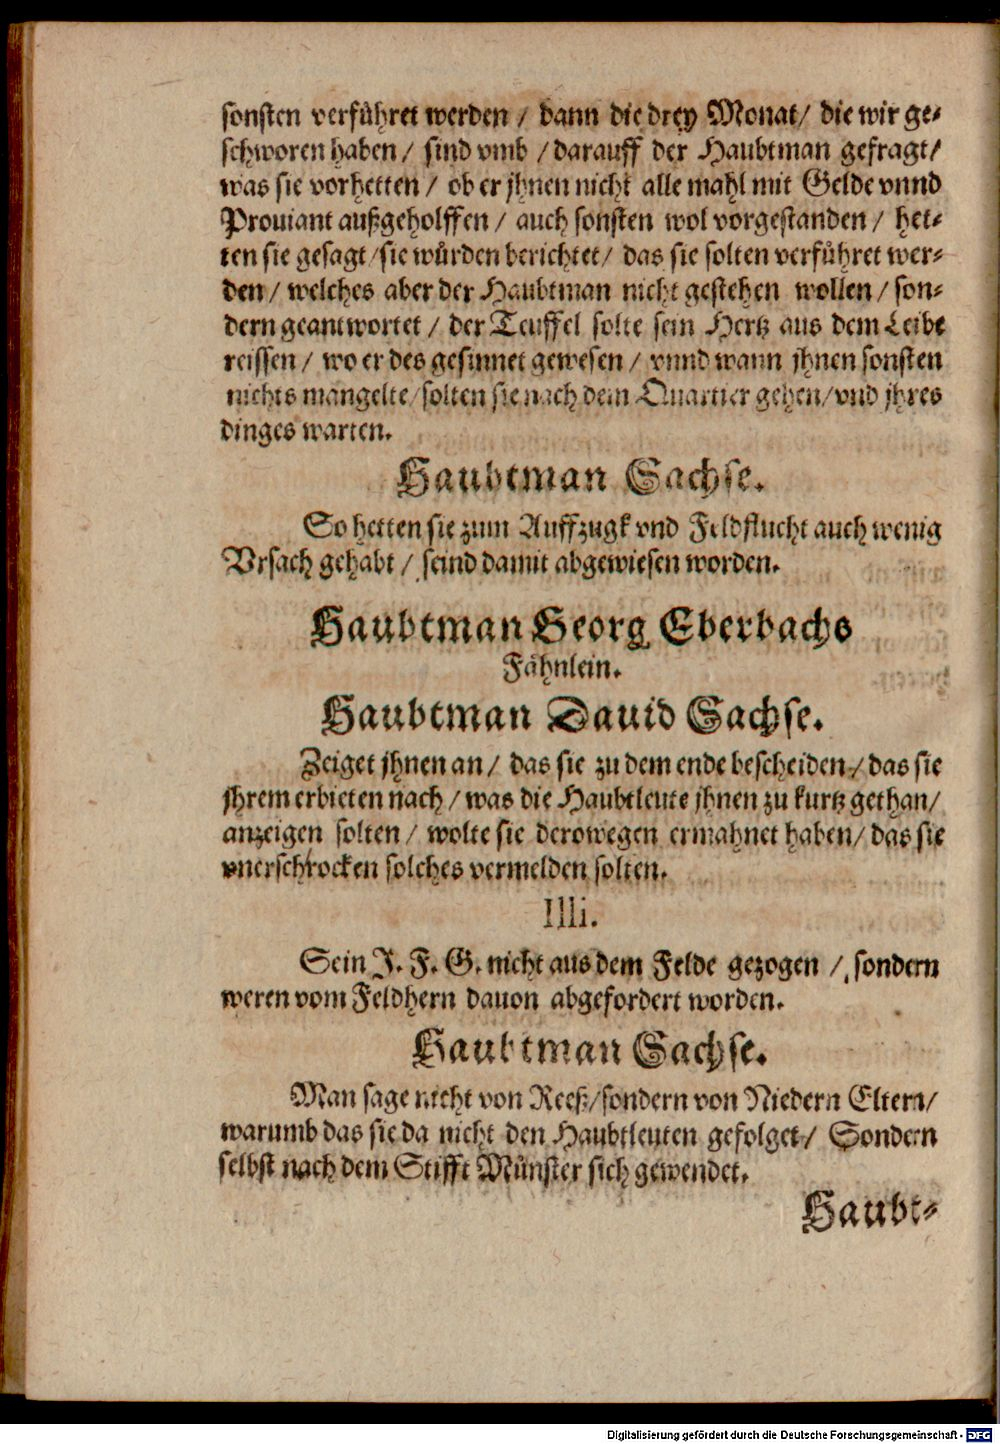 sonsten verführet werden / dann die drey Monat/ die wir ge-
schworen haben / sind vmb / darauff der Haubtman gefragt/
was sie vorhetten / ob er jhnen nicht alle mahl mit Gelde vnnd
Prouiant außgeholffen / auch sonsten wol vorgestanden / het-
ten sie gesagt/sie würden berichtet/ das sie solten verführet wer-
den / welches aber der Haubtman nicht gestehen wollen / son-
dern geantwortet / der Teuffel solte sein Hertz aus dem Leibe
reissen / wo er des gesinnet gewesen / vnnd wann jhnen sonsten
nichts mangelte/solten sie nach dem Quartier gehen/vnd jhres
dinges warten.
Haubtman Sachse.
So hetten sie zum Auffzugk vnd Feldflucht auch wenig
Vrsach gehabt / seind damit abgewiesen worden.
Haubtman Georg Eberbachs
Fähnlein.
Haubtman Dauid Sachse.
Zeiget jhnen an / das sie zu dem ende bescheiden / das sie
jhrem erbieten nach / was die Haubtleute jhnen zu kurtz gethan/
anzeigen solten / wolte sie derowegen ermahnet haben/ das sie
vnerschrocken solches vermelden solten.
Illi.
Sein J. F. G. nicht aus dem Felde gezogen / sondern
weren vom Feldhern dauon abgefordert worden.
Haubtman Sachse.
Man sage nicht von Reeß/sondern von Niedern Eltern/
warumb das sie da nicht den Haubtleuten gefolget / Sondern
selbst nach dem Stifft Münster sich gewendet.
Haubt-
Digitalisierung gefördert durch die Deutsche Forschungsgemeinschaft - DFG